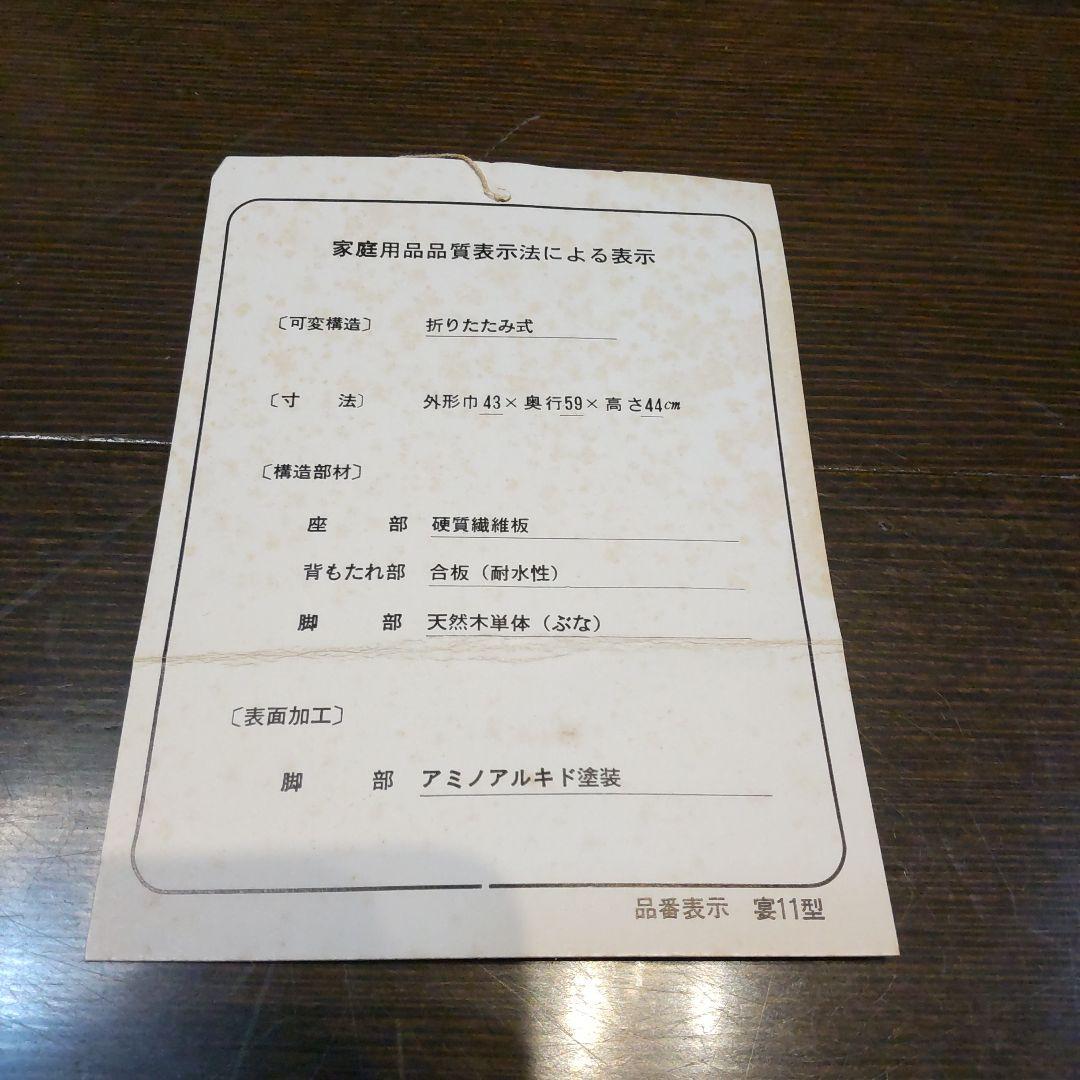 家庭用品品質表示法による表示
〔可変構造〕 折りたたみ式
〔寸 法〕 外形巾43×奥行59×高さ44cm
〔構造部材〕
座 部 硬質繊維板
背もたれ部 合板（耐水性）
脚 部 天然木単体（ぶな）
〔表面加工〕
脚 部 アミノアルキド塗装
品番表示 宴11型